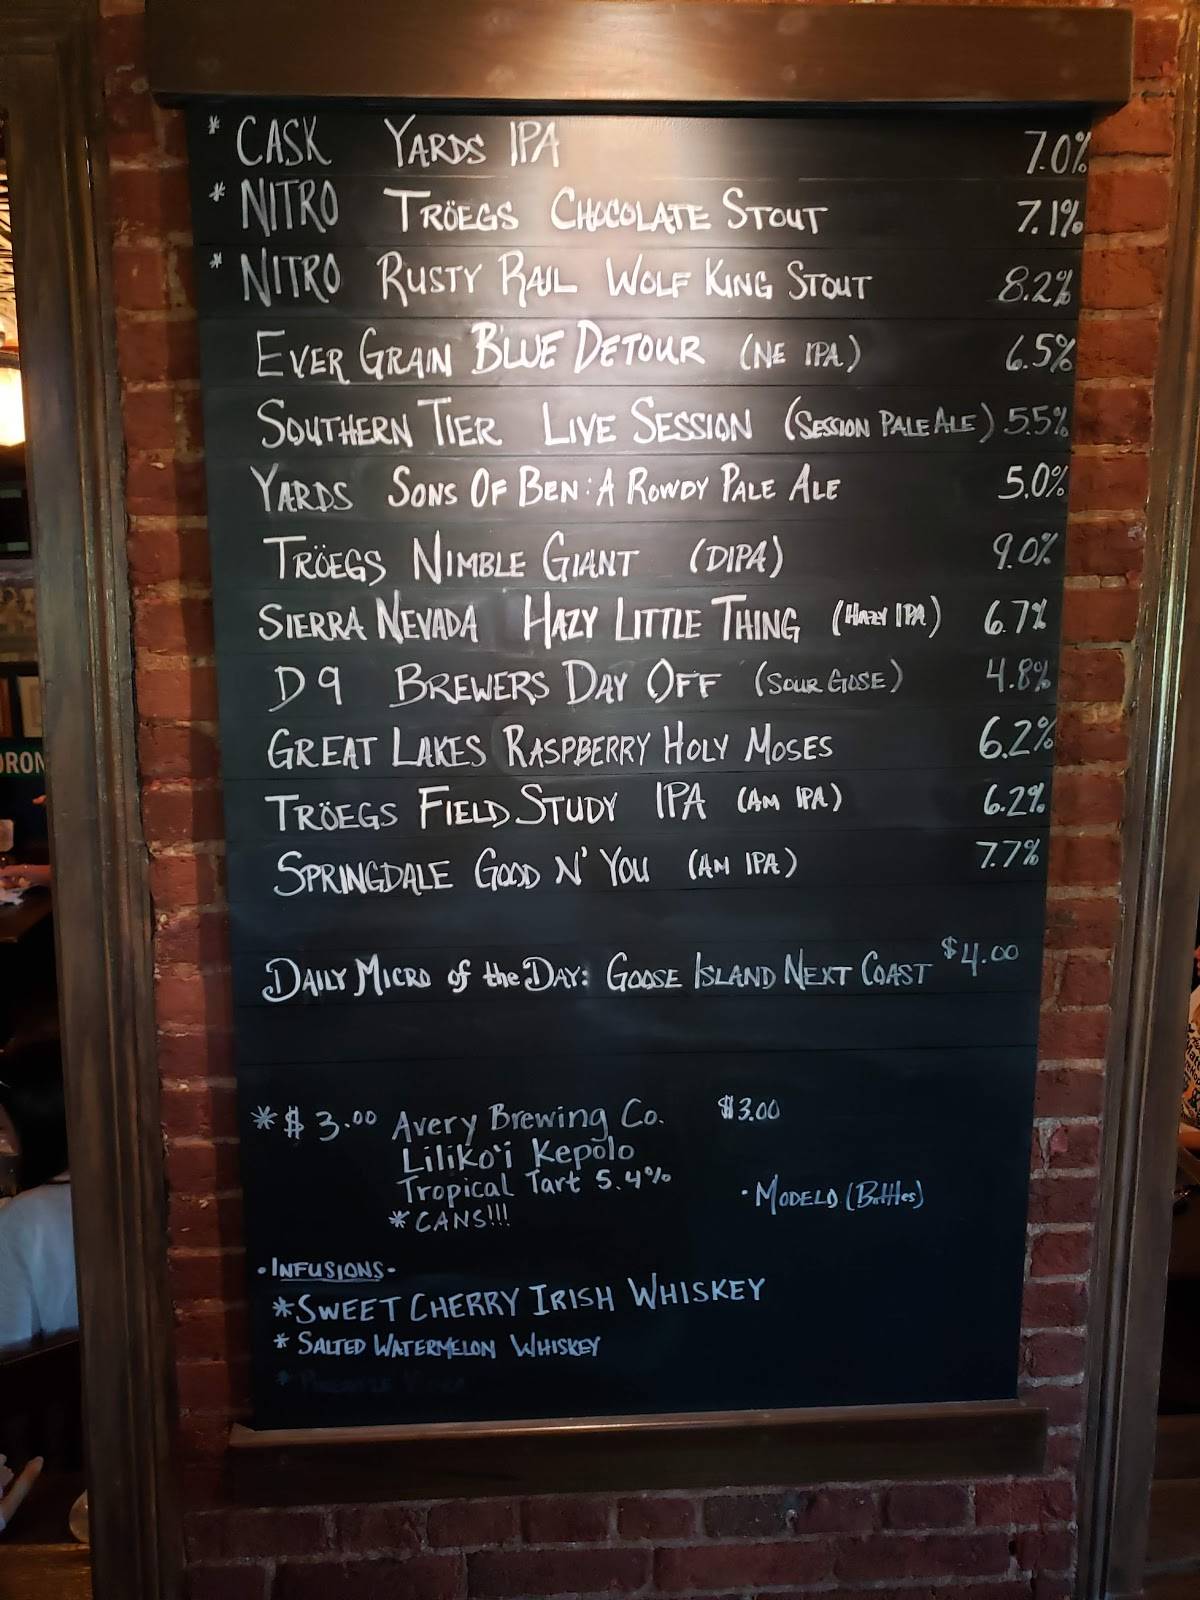 * CASK YARDS IPA 7.0%
* NITRO TRÖEGS CHOCOLATE STOUT 7.1%
* NITRO RUSTY RAIL WOLF KING STOUT 8.2%
EVER GRAIN BLUE DETOUR (NE IPA) 6.5%
SOUTHERN TIER LIVE SESSION (SESSION PALE ALE) 5.5%
YARDS SONS OF BEN: A ROWDY PALE ALE 5.0%
TRÖEGS NIMBLE GIANT (DIPA) 9.0%
SIERRA NEVADA HAZY LITTLE THING (HAZY IPA) 6.7%
D9 BREWERS DAY OFF (SOUR GOSE) 4.8%
GREAT LAKES RASPBERRY HOLY MOSES 6.2%
TRÖEGS FIELD STUDY IPA (AM IPA) 6.2%
SPRINGDALE GOOD N' YOU (AM IPA) 7.7%
DAILY MICRO of the DAY: GOOSE ISLAND NEXT COAST $4.00
* $3.00 Avery Brewing Co. $3.00
Liliko'i Kepolo
Tropical Tart 5.4%
· MODELO (Bottles)
* CANS!!!
· INFUSIONS ·
* SWEET CHERRY IRISH WHISKEY
* SALTED WATERMELON WHISKEY
*